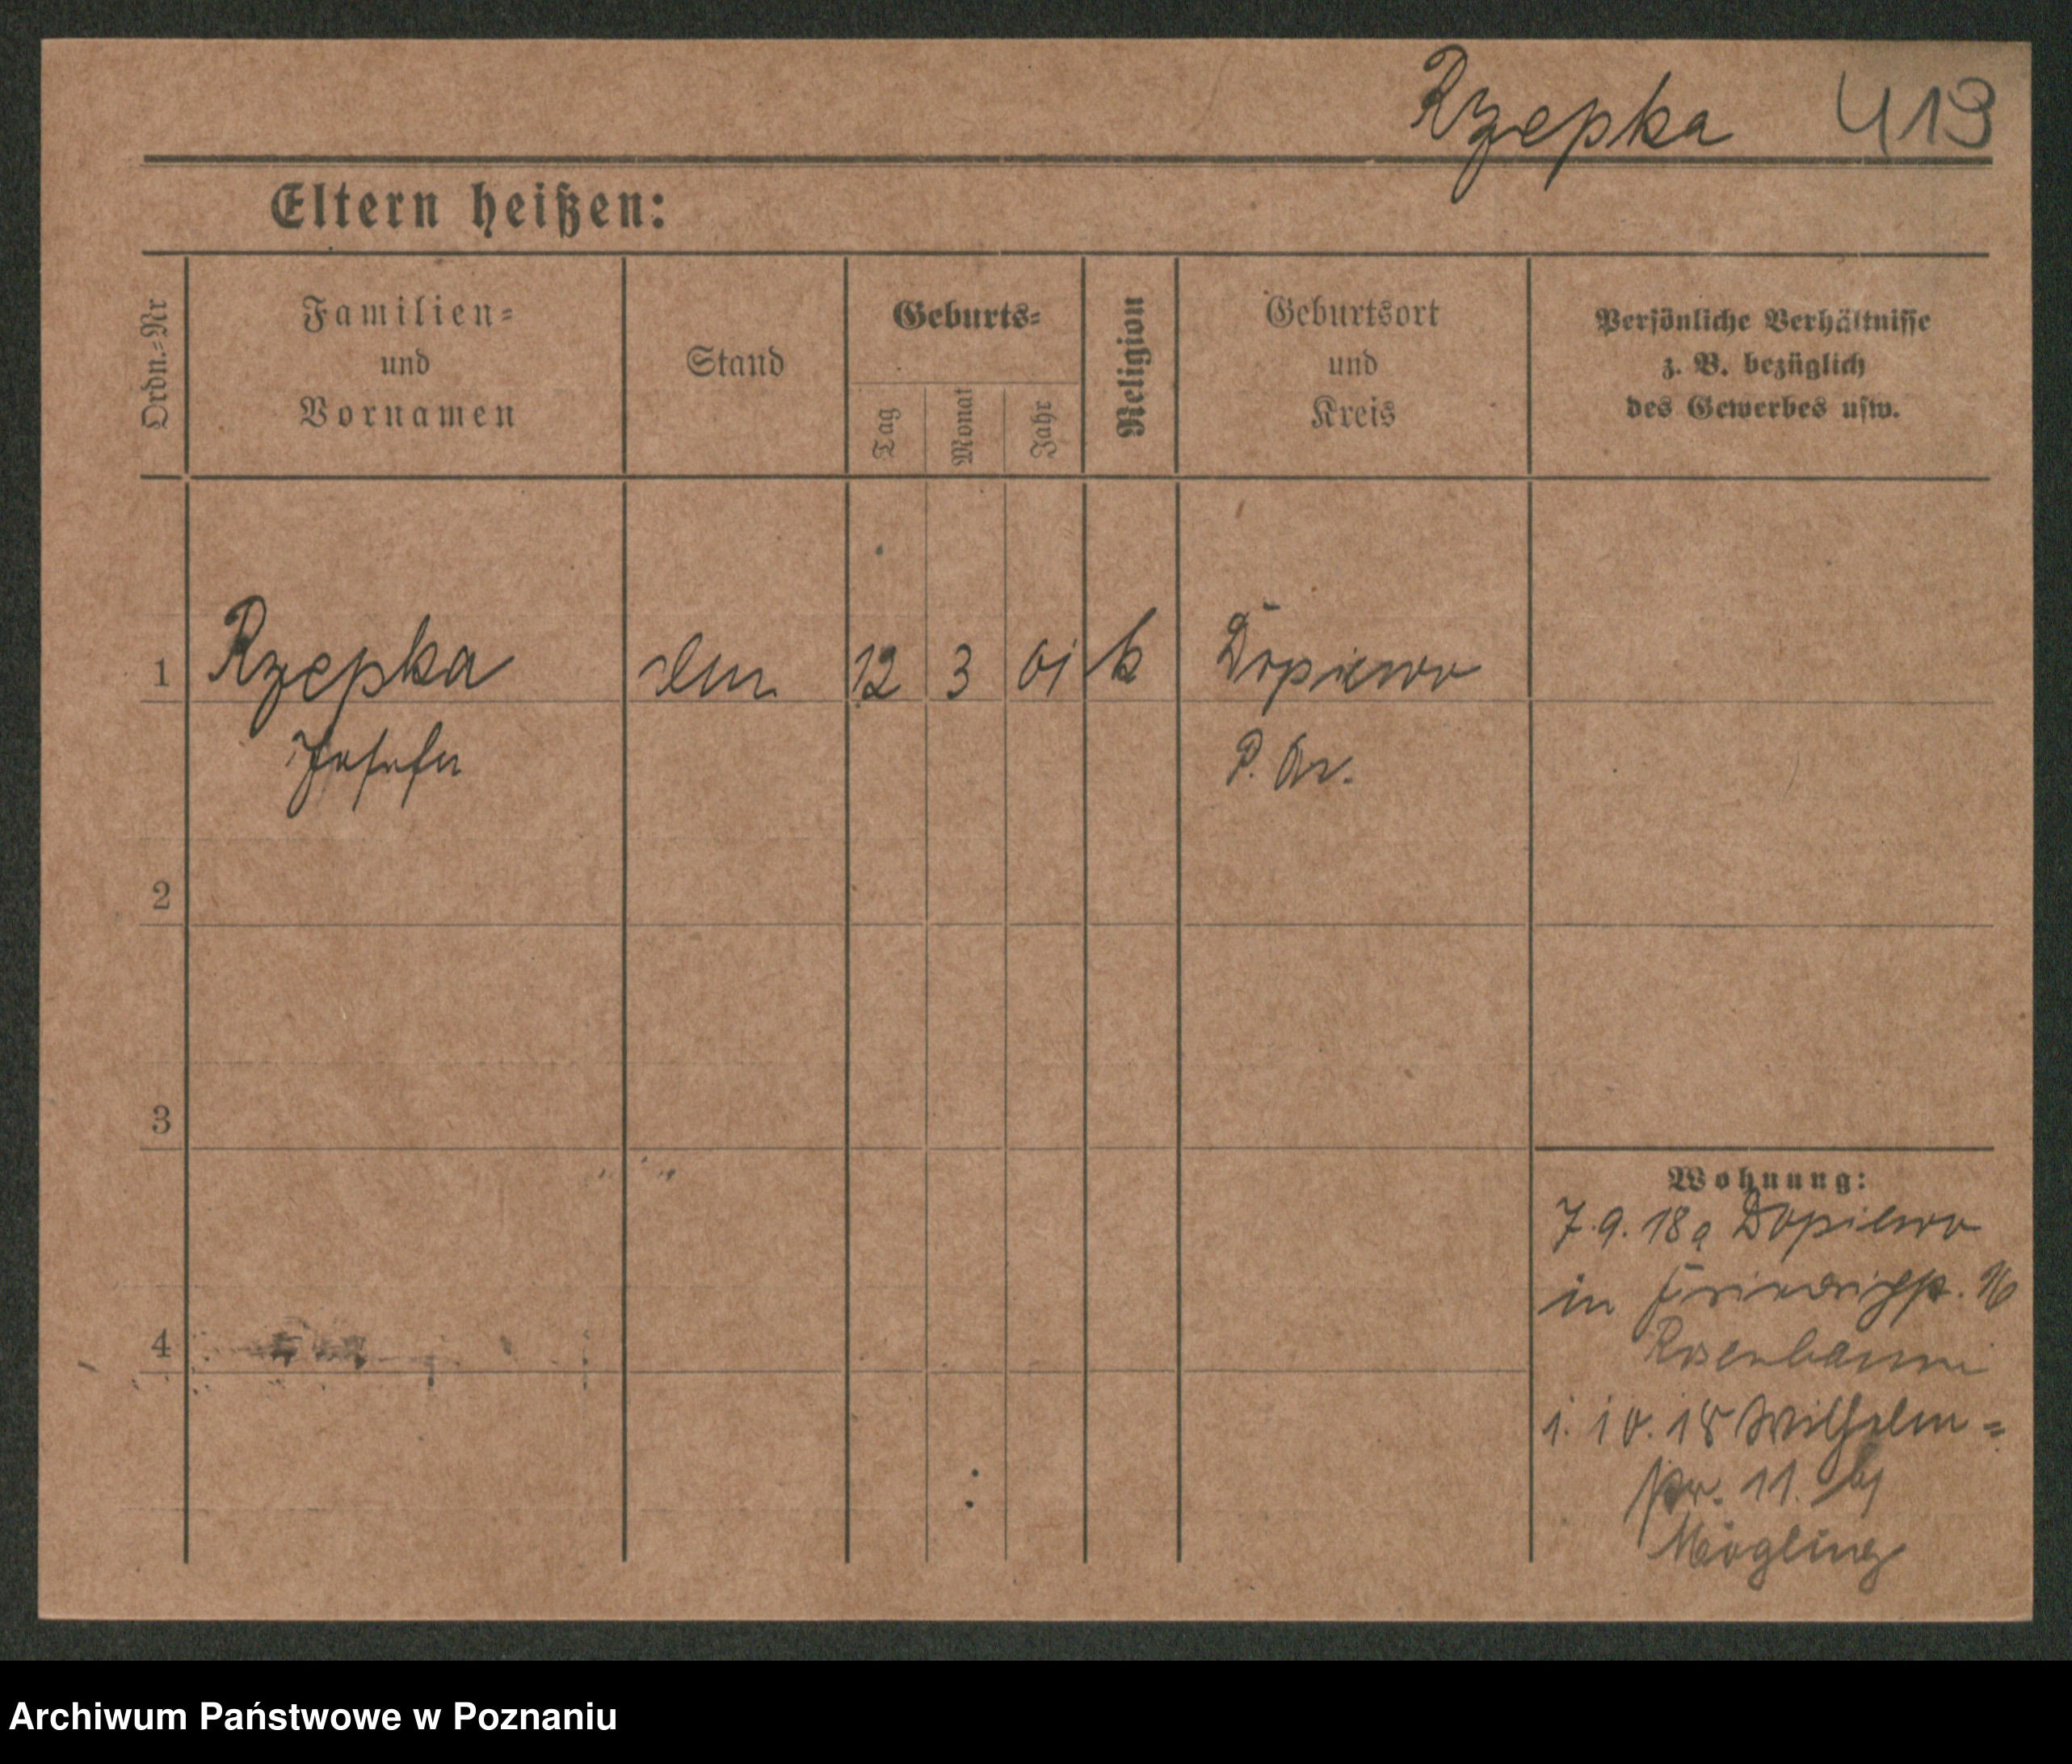 Rzepka 419
Eltern heißen:
Ordn.-Nr
Familien-
und
Vornamen
Stand
Geburts-
Tag
Monat
Jahr
Religion
Geburtsort
und
Kreis
Persönliche Verhältnisse
z. B. bezüglich
des Gewerbes usw.
1 Rzepka 12 3 01 k Dopiewo
Josefa P. W.
2
3
4
Wohnung:
7.9.18 a Dopiewo
in Friedrichstr. 16
Rosenbaum
1.10.18 Wilhelm-
str. 11. bj
Mögling
Archiwum Państwowe w Poznaniu